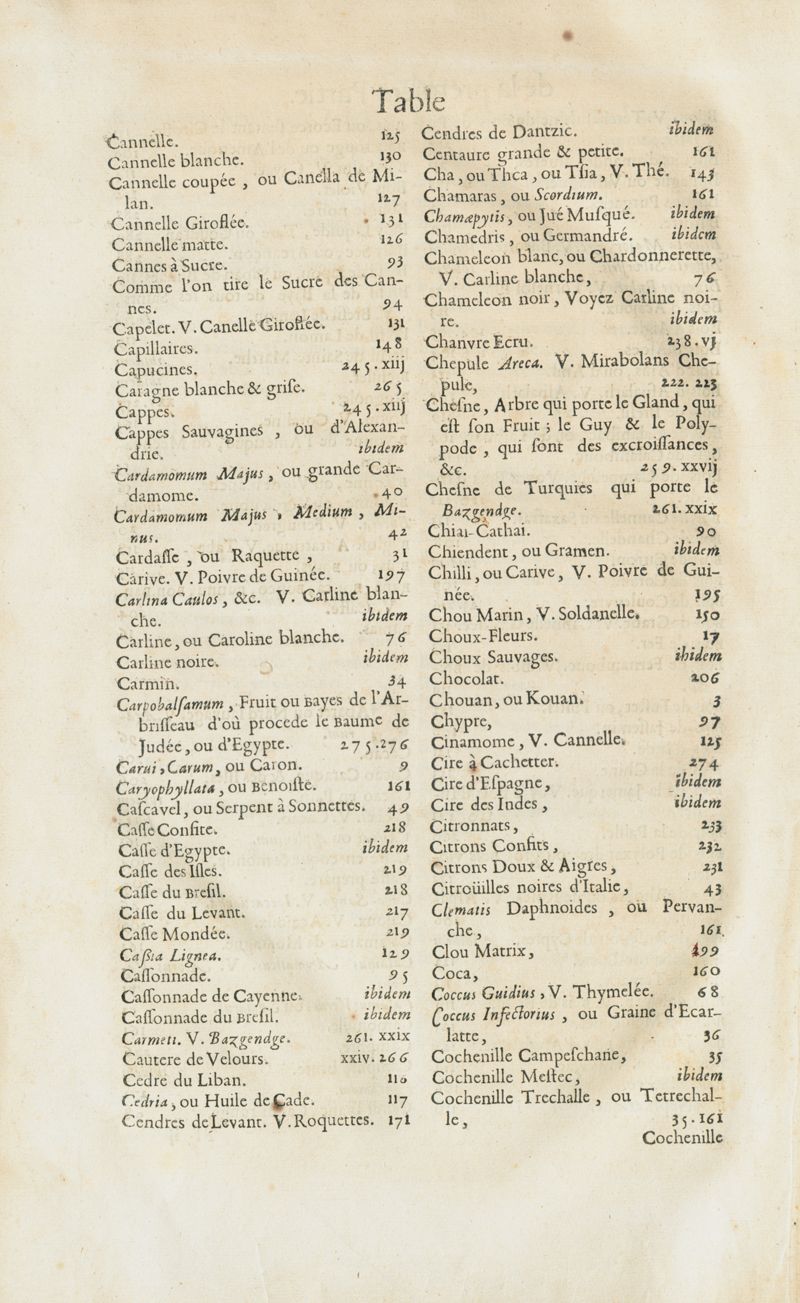 Table
Cannelle. 125
Cannelle blanche. 130
Cannelle coupée , ou Canella de Mi-
lan. 127
Cannelle Giroflée. 131
Cannelle matte. 126
Cannes à Sucre. 93
Comme l'on tire le Sucre des Can-
nes. 94
Capelet. V. Canelle Giroflée. 131
Capillaires. 148
Capucines. 245.xiij
Caragne blanche & griſe. 265
Cappes. 245.xiij
Cappes Sauvagines , ou d'Alexan-
drie. ibidem
Cardamomum Majus , ou grande Car-
damome. 40
Cardamomum Majus , Medium , Mi-
nus. 42
Cardaſſe , ou Raquette , 31
Carive. V. Poivre de Guinée. 197
Carlina Caulos , &c. V. Carline blan-
che. ibidem
Carline, ou Caroline blanche. 76
Carline noire. ibidem
Carmin. 34
Carpobalſamum , Fruit ou Bayes de l'Ar-
briſſeau d'où procede le Baume de
Judée, ou d'Egypte. 275.276
Carui , Carum, ou Caron. 9
Caryophyllata , ou Benoiſte. 161
Caſcavel, ou Serpent à Sonnettes. 49
Caſſe Confite. 218
Caſſe d'Egypte. ibidem
Caſſe des Iſles. 219
Caſſe du Breſil. 218
Caſſe du Levant. 217
Caſſe Mondée. 219
Caſsia Lignea. 129
Caſſonnade. 95
Caſſonnade de Cayenne. ibidem
Caſſonnade du Breſil. ibidem
Carmeti. V. Bazgendge. 261. xxix
Cautere de Velours. xxiv. 266
Cedre du Liban. 110
Cedria , ou Huile de Cade. 117
Cendres de Levant. V. Roquettes. 171
Cendres de Dantzic. ibidem
Centaure grande & petite. 161
Cha, ou Thca, ou Tſia, V. Thé. 143
Chamaras , ou Scordium. 161
Chamæpytis, ou Jué Muſqué. ibidem
Chamedris , ou Germandré. ibidem
Chameleon blanc, ou Chardonnerette,
V. Carline blanche, 76
Chameleon noir, Voyez Carline noi-
re. ibidem
Chanvre Ecru. 238.vj
Chepule Areca. V. Mirabolans Che-
pule, 222. 223
Cheſne, Arbre qui porte le Gland, qui
eſt ſon Fruit ; le Guy & le Poly-
pode , qui ſont des excroiſſances,
&c. 259.xxvij
Cheſne de Turquies qui porte le
Bazgendge. 261.xxix
Chiai-Cathai. 90
Chiendent, ou Gramen. ibidem
Chilli, ou Carive, V. Poivre de Gui-
née. 195
Chou Marin, V. Soldanelle. 150
Choux-Fleurs. 17
Choux Sauvages. ibidem
Chocolat. 206
Chouan, ou Kouan. 3
Chypre, 97
Cinamome , V. Cannelle. 125
Cire à Cachetter. 274
Cire d'Eſpagne, ibidem
Cire des Indes , ibidem
Citronnats, 233
Citrons Confits , 232
Citrons Doux & Aigres, 231
Citroüilles noires d'Italie, 43
Clematis Daphnoides , ou Pervan-
che, 161
Clou Matrix, 199
Coca, 160
Coccus Guidius , V. Thymelée. 68
Coccus Infectorius , ou Graine d'Ecar-
latte, 36
Cochenille Campeſchane, 35
Cochenille Meſtec, ibidem
Cochenille Trechalle , ou Tetrechal-
le, 35.161
Cochenille